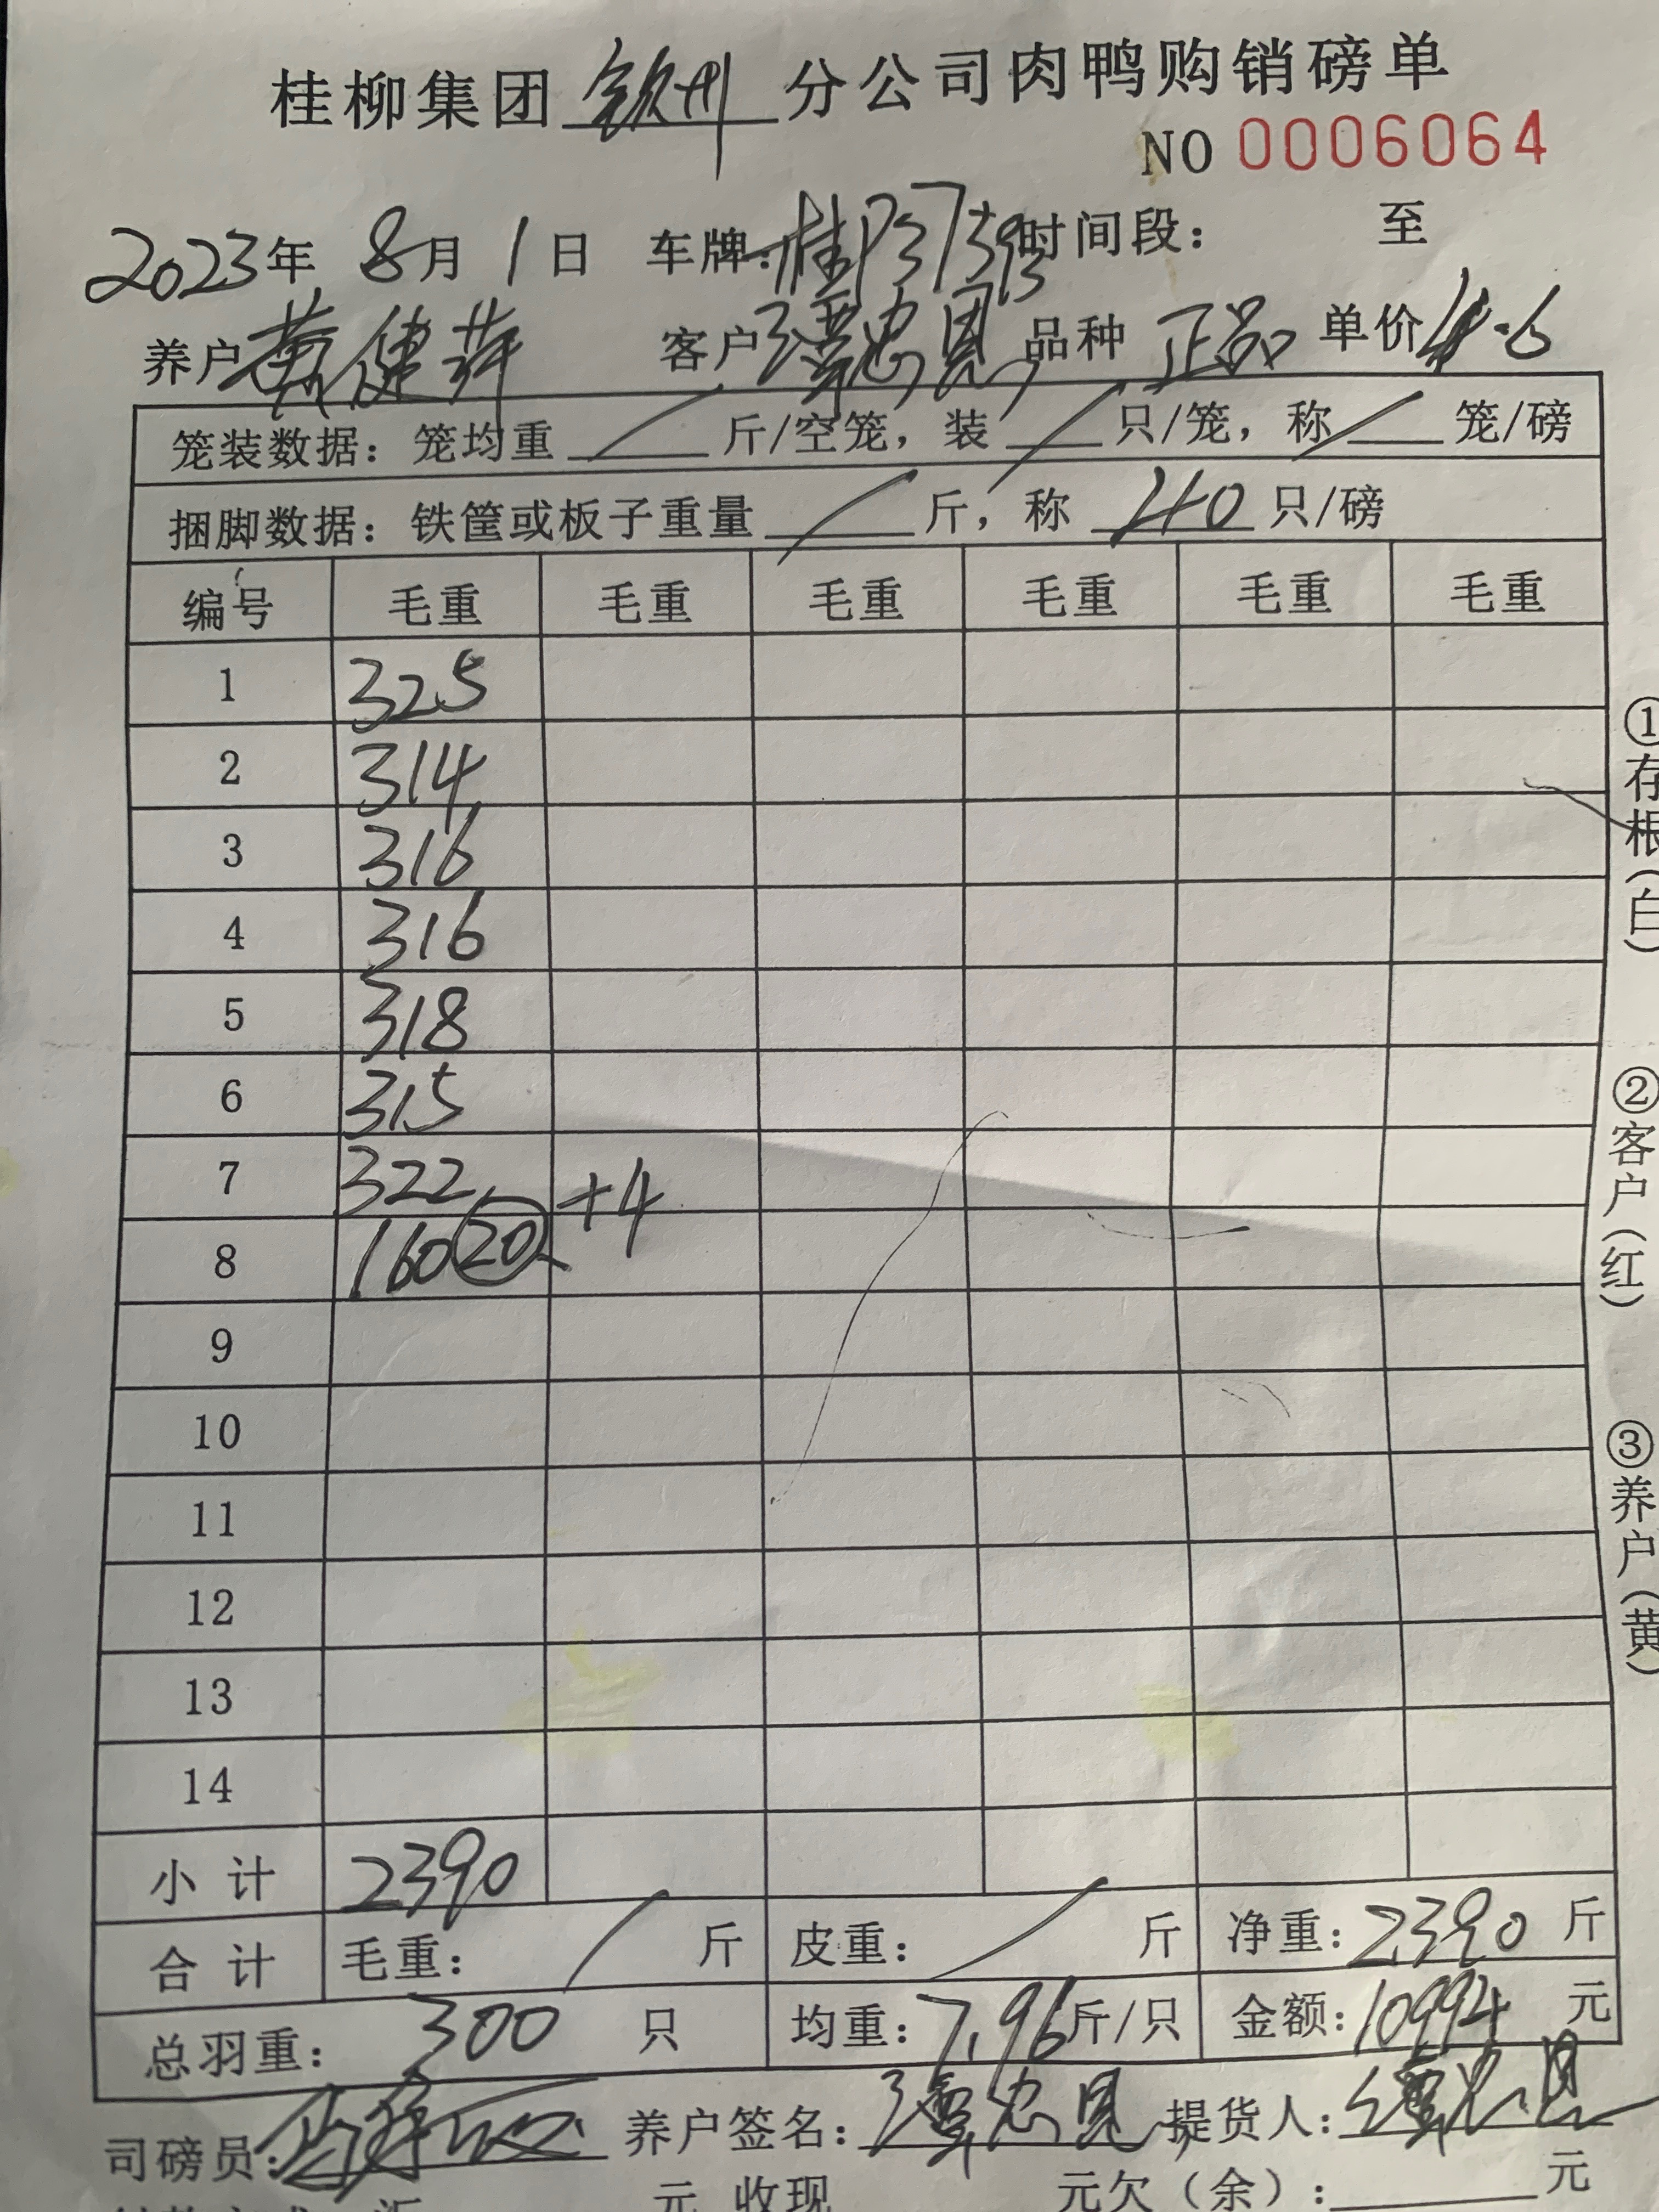 桂柳集团 钦州 分公司肉鸭购销磅单
NO 0006064
2023年 8月 1日 车牌:桂P37593 时间段: 至
养户 黄健萍 客户 谭忠恩 品种 正品 单价 4.6
笼装数据:笼均重 / 斤/空笼,装 / 只/笼,称 / 笼/磅
捆脚数据:铁筐或板子重量 / 斤,称 40 只/磅
编号 毛重 毛重 毛重 毛重 毛重 毛重
1 325
2 314
3 316
4 316
5 318
6 315
7 322
8 160 20 +4
9
10
11
12
13
14
小计 2390
合计 毛重: / 斤 皮重: / 斤 净重:2390 斤
总羽重: 300 只 均重:7.96斤/只 金额:10994 元
司磅员: 养户签名:谭忠恩 提货人:谭忠恩
元 收现 元欠(余): 元
①存根(白)
②客户(红)
③养户(黄)